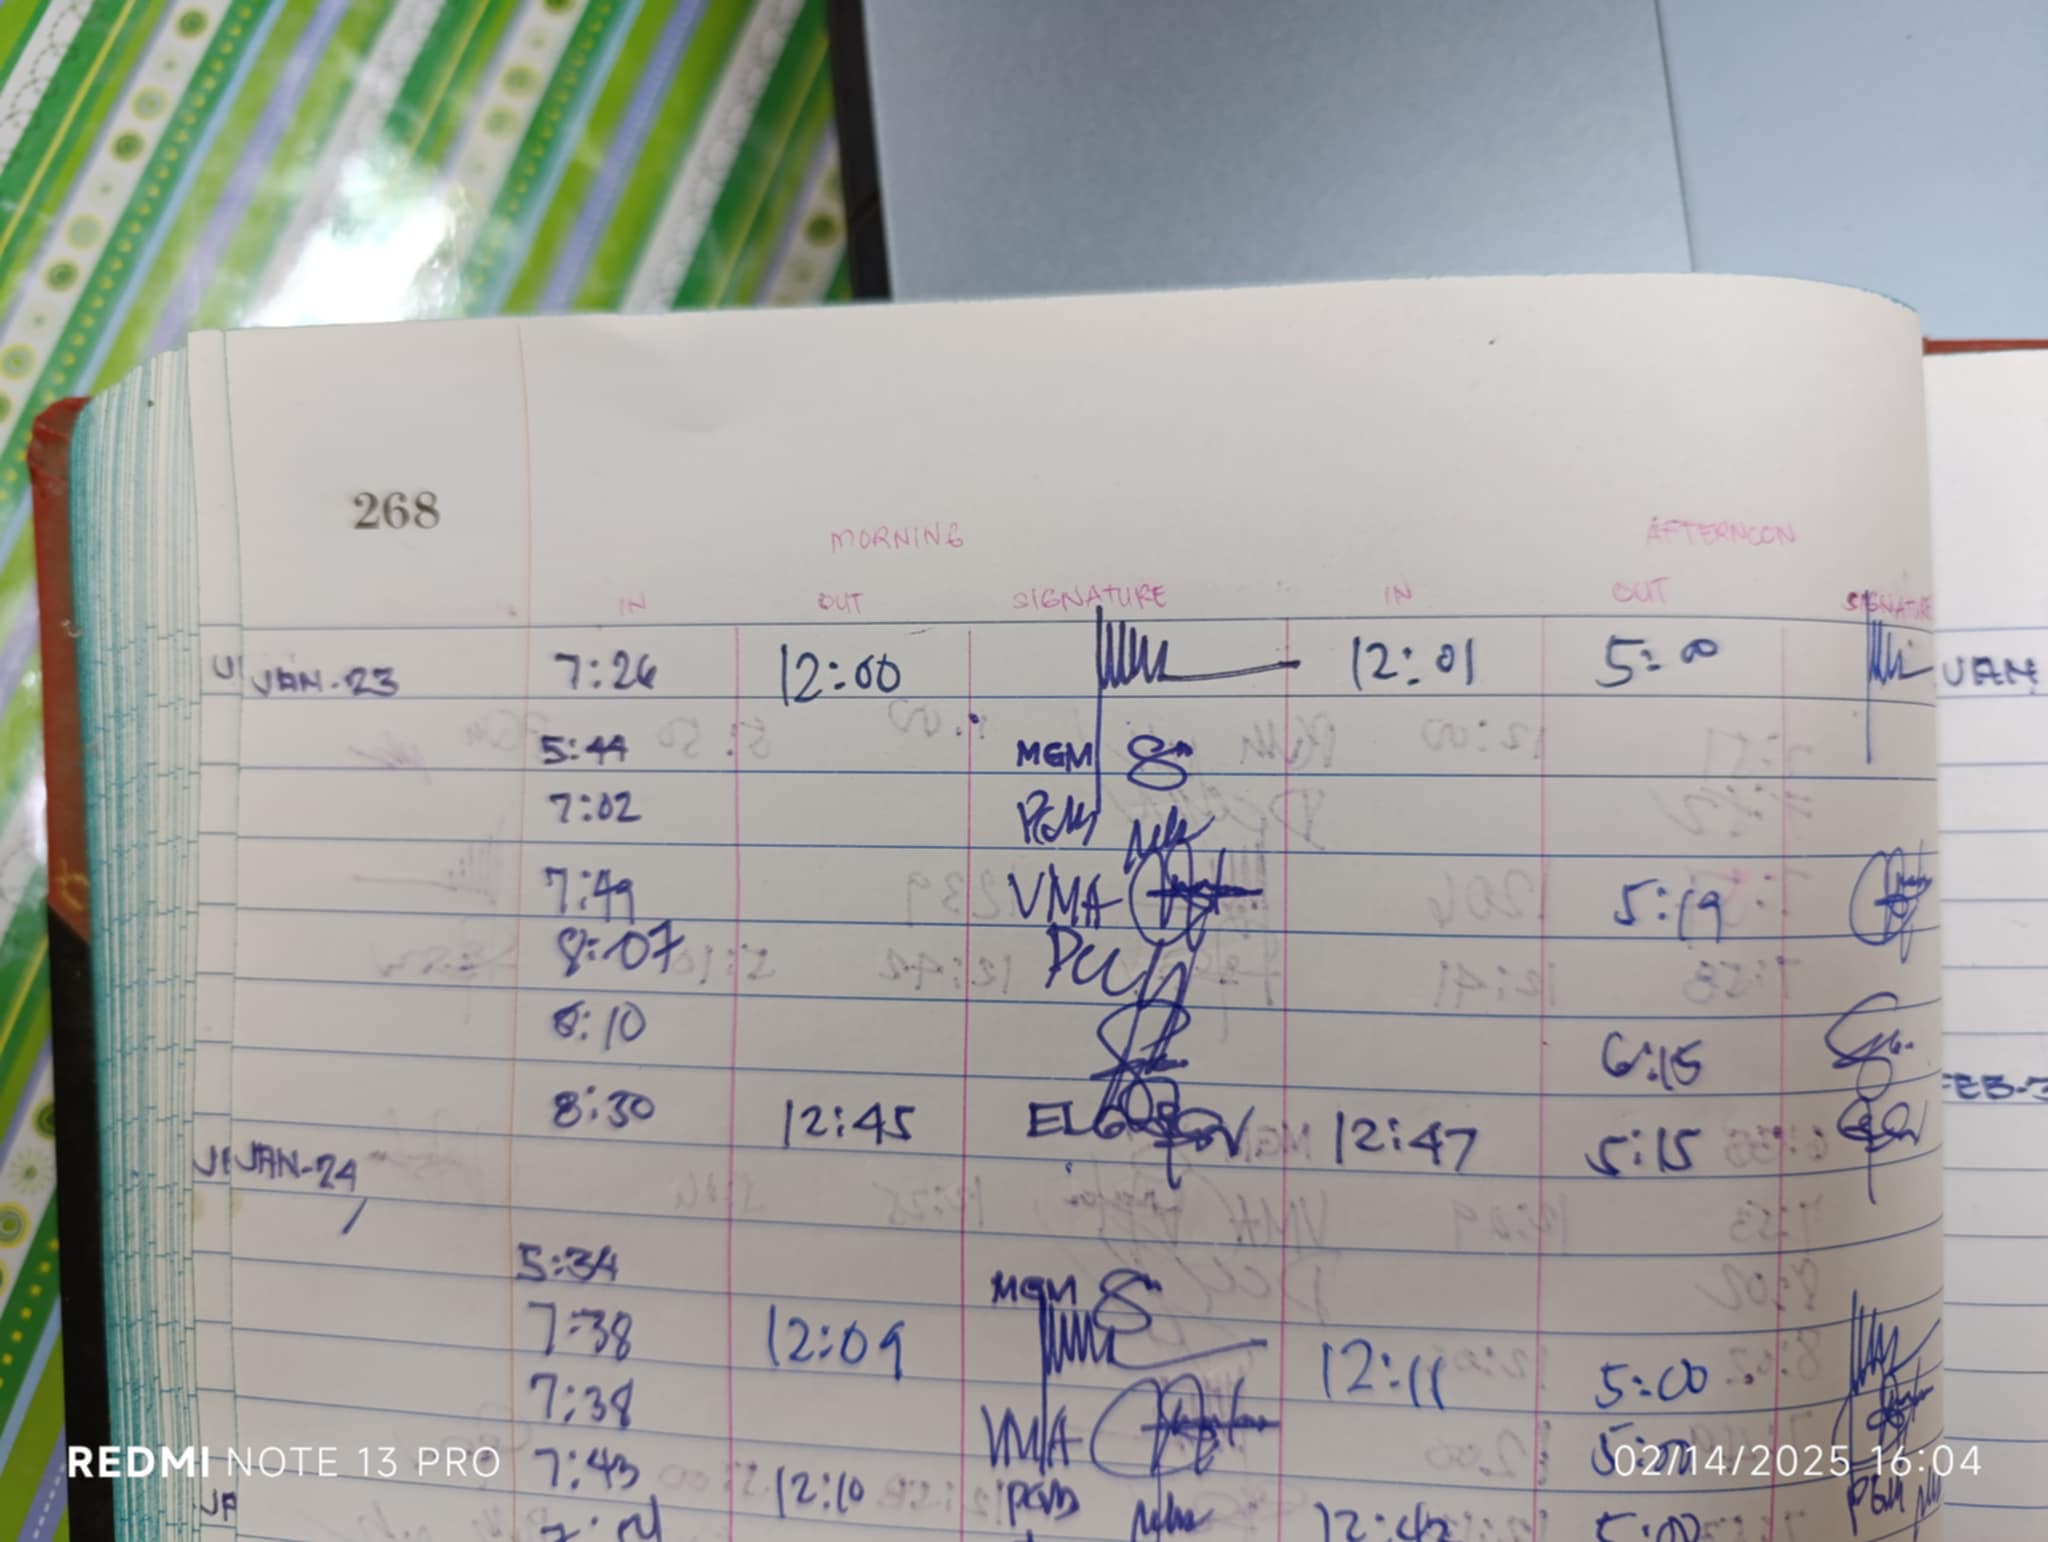 268
MORNING AFTERNOON
IN OUT SIGNATURE IN OUT SIGNATURE
JAN-23 7:26 12:00 12:01 5:00 JAN
5:44 MGM
7:02 PGM
7:49 VMA 5:19
8:07 PCC
8:10 6:15
8:30 12:45 12:47 5:15
FEB-3
JAN-24
5:34 MGM
7:38 12:09 12:11 5:00
7:38 VMA 5:00
7:43 12:10 PGM 12:42 5:00 PGM
REDMI NOTE 13 PRO
02/14/2025 16:04